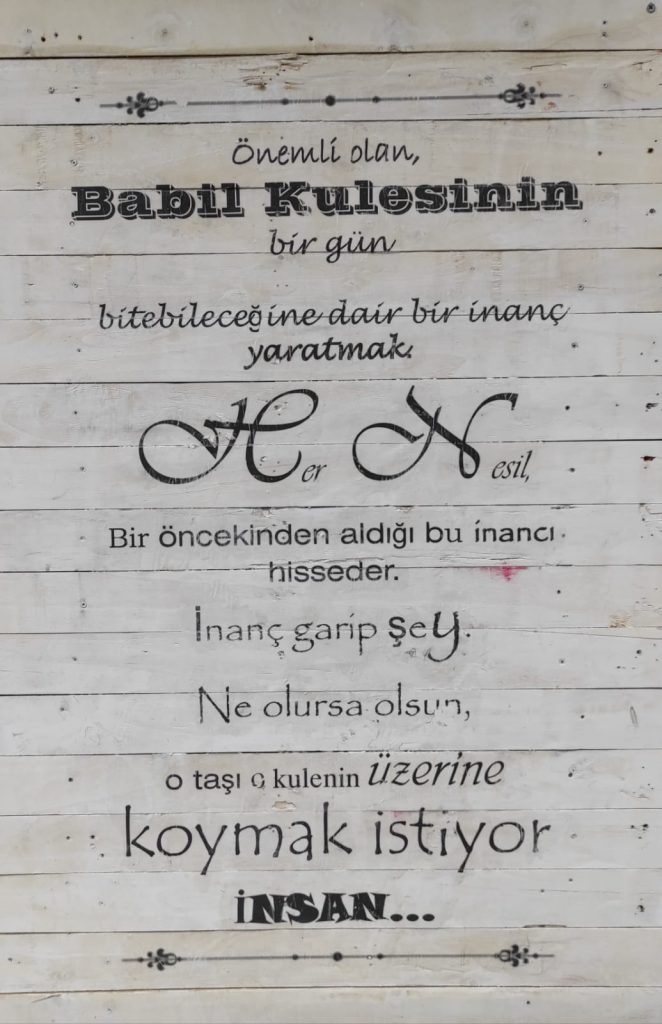 Önemli olan,
Babil Kulesinin
bir gün
bitebileceğine dair bir inanç
yaratmak.
Her Nesil,
Bir öncekinden aldığı bu inancı
hisseder.
İnanç garip şey.
Ne olursa olsun,
o taşı o kulenin üzerine
koymak istiyor
İNSAN...